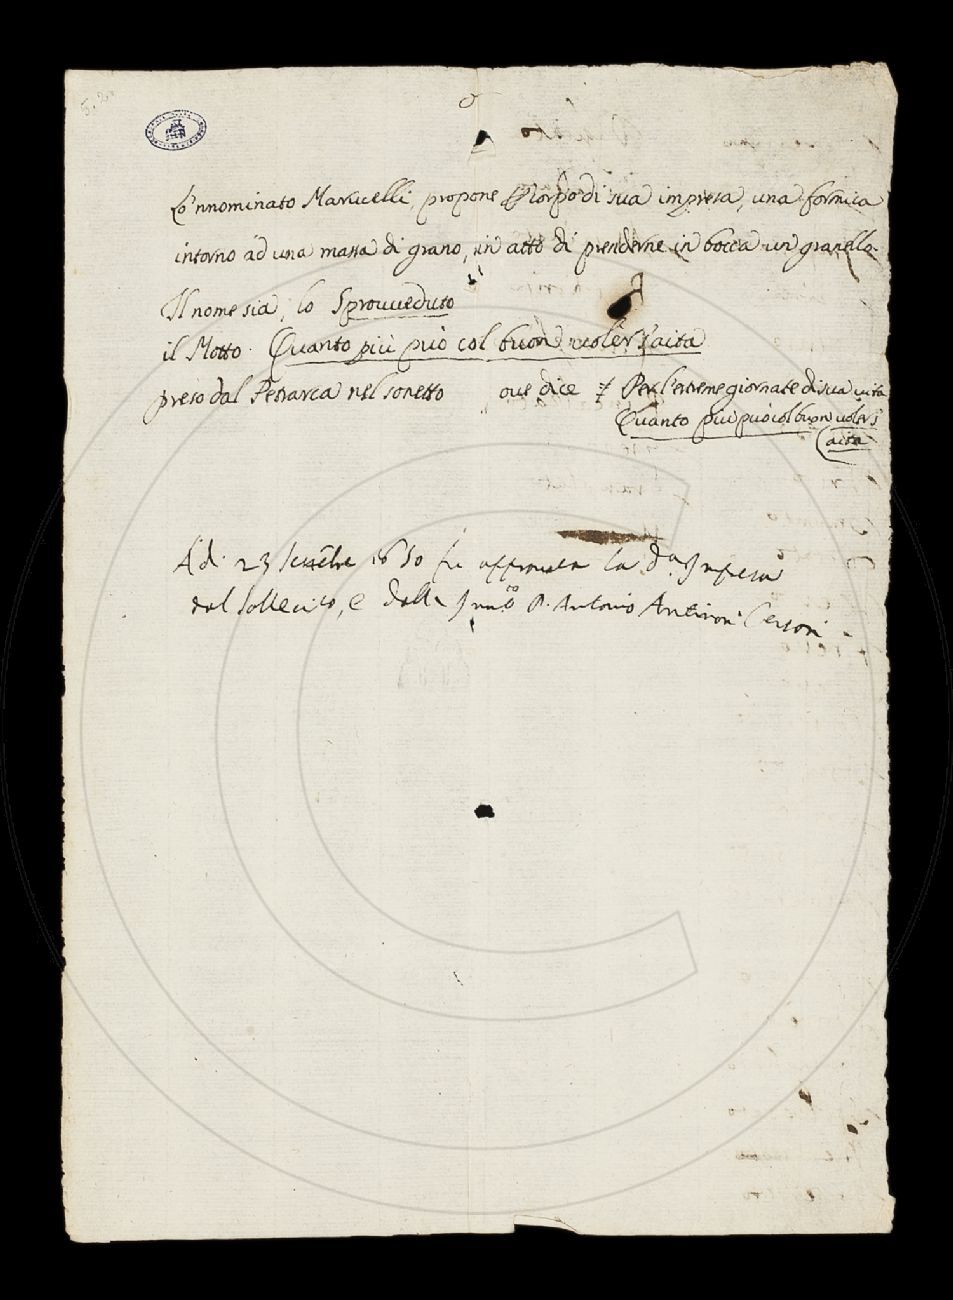 Lo'nnominato Marucelli, propone p Corpo di sua impresa, una formica
intorno ad una massa di grano, in atto di prenderne in bocca un granello.
Il nome sia, lo Sprovveduto
il Motto. Quanto più può col buon voler s'aita
preso dal Petrarca nel sonetto oue dice Per l'extreme giornate di sua uita
Quanto più puo col buon uoler s'
aita
A'dì 23 1650 fu approuata la d.a Impresa
dal Sollecito, e dalla P. Antonio